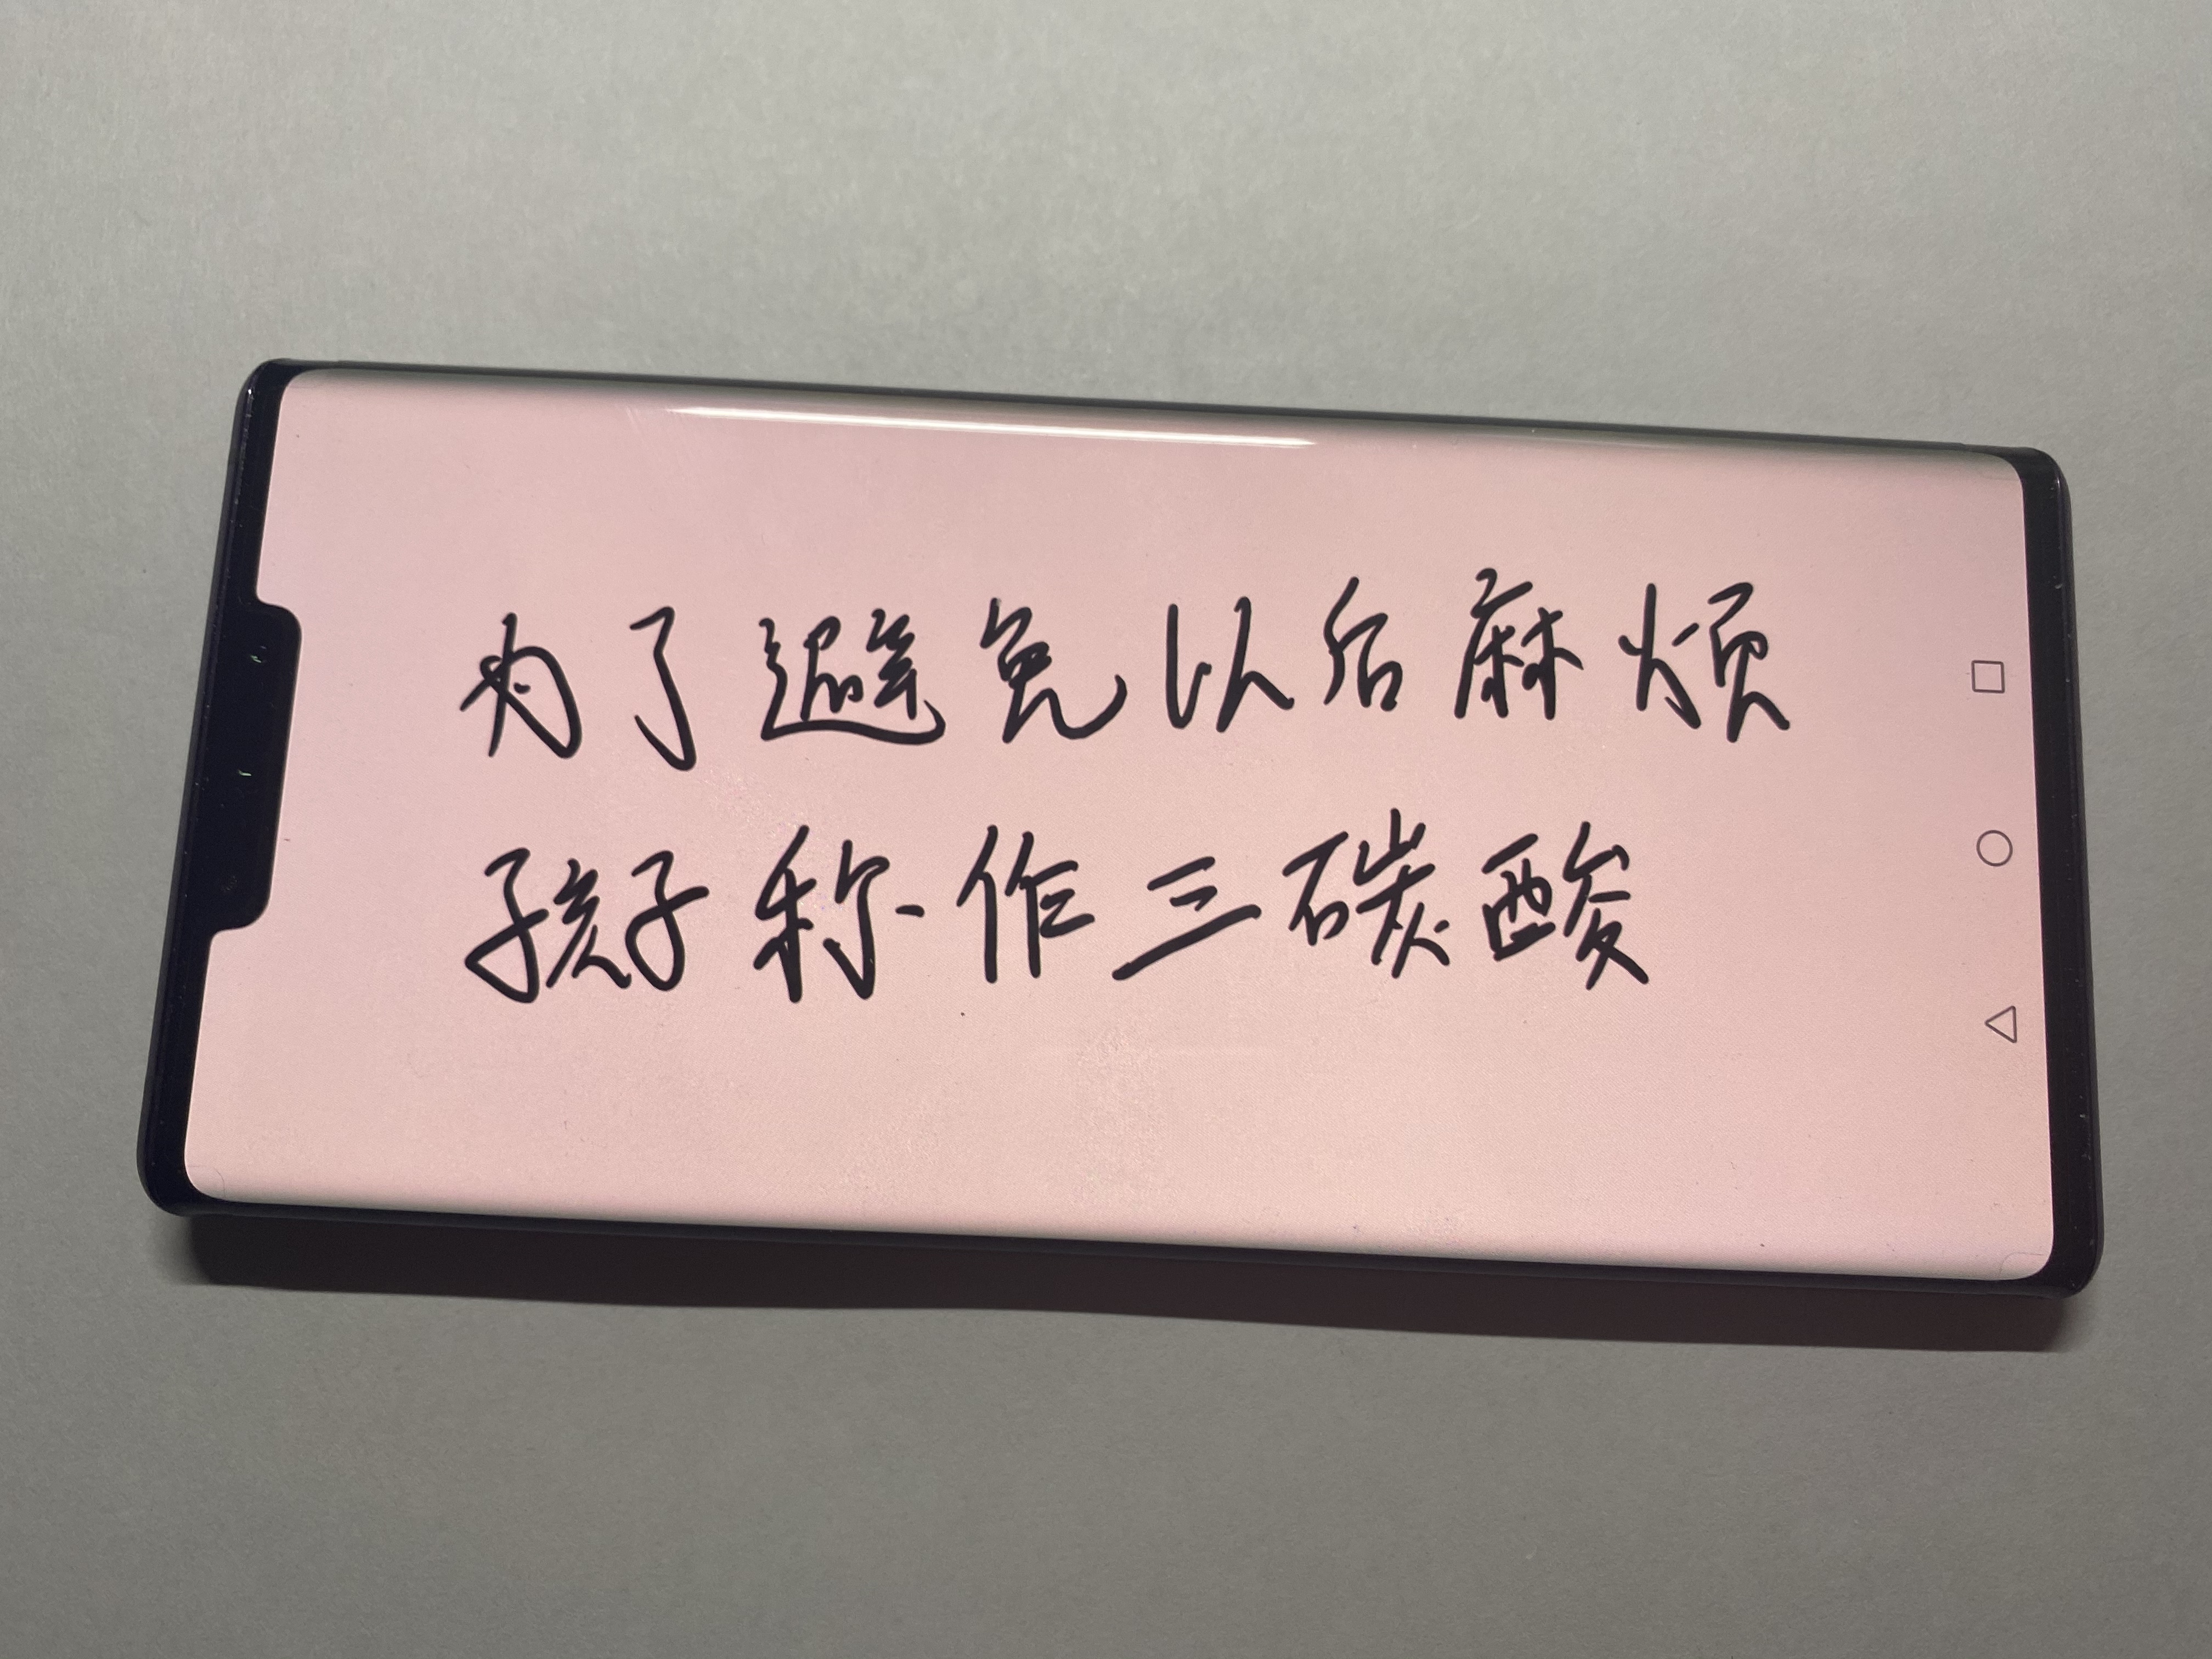 为了避免以后麻烦
孩子称作三碳酸